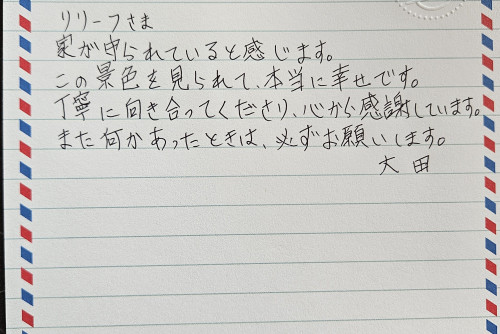 リリーフさま
家が守られていると感じます。
この景色を見られて、本当に幸せです。
丁寧に向き合ってくださり、心から感謝しています。
また何かあったときは、必ずお願いします。
大田